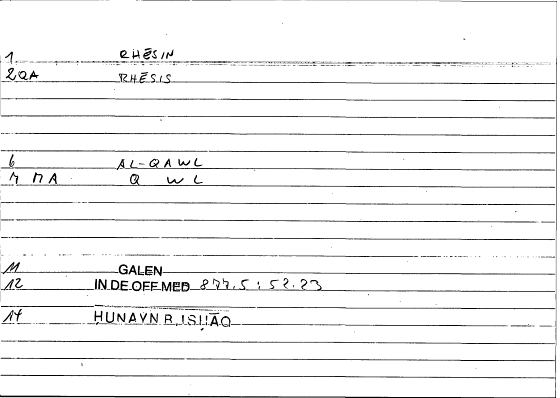 1 RHĒSIN
2 QA RHĒSIS
6 AL-QAWL
7 MA Q W L
11 GALEN
12 IN DE OFF MED 877.5 : 52.23
14 ḤUNAYN B. ISḤĀQ